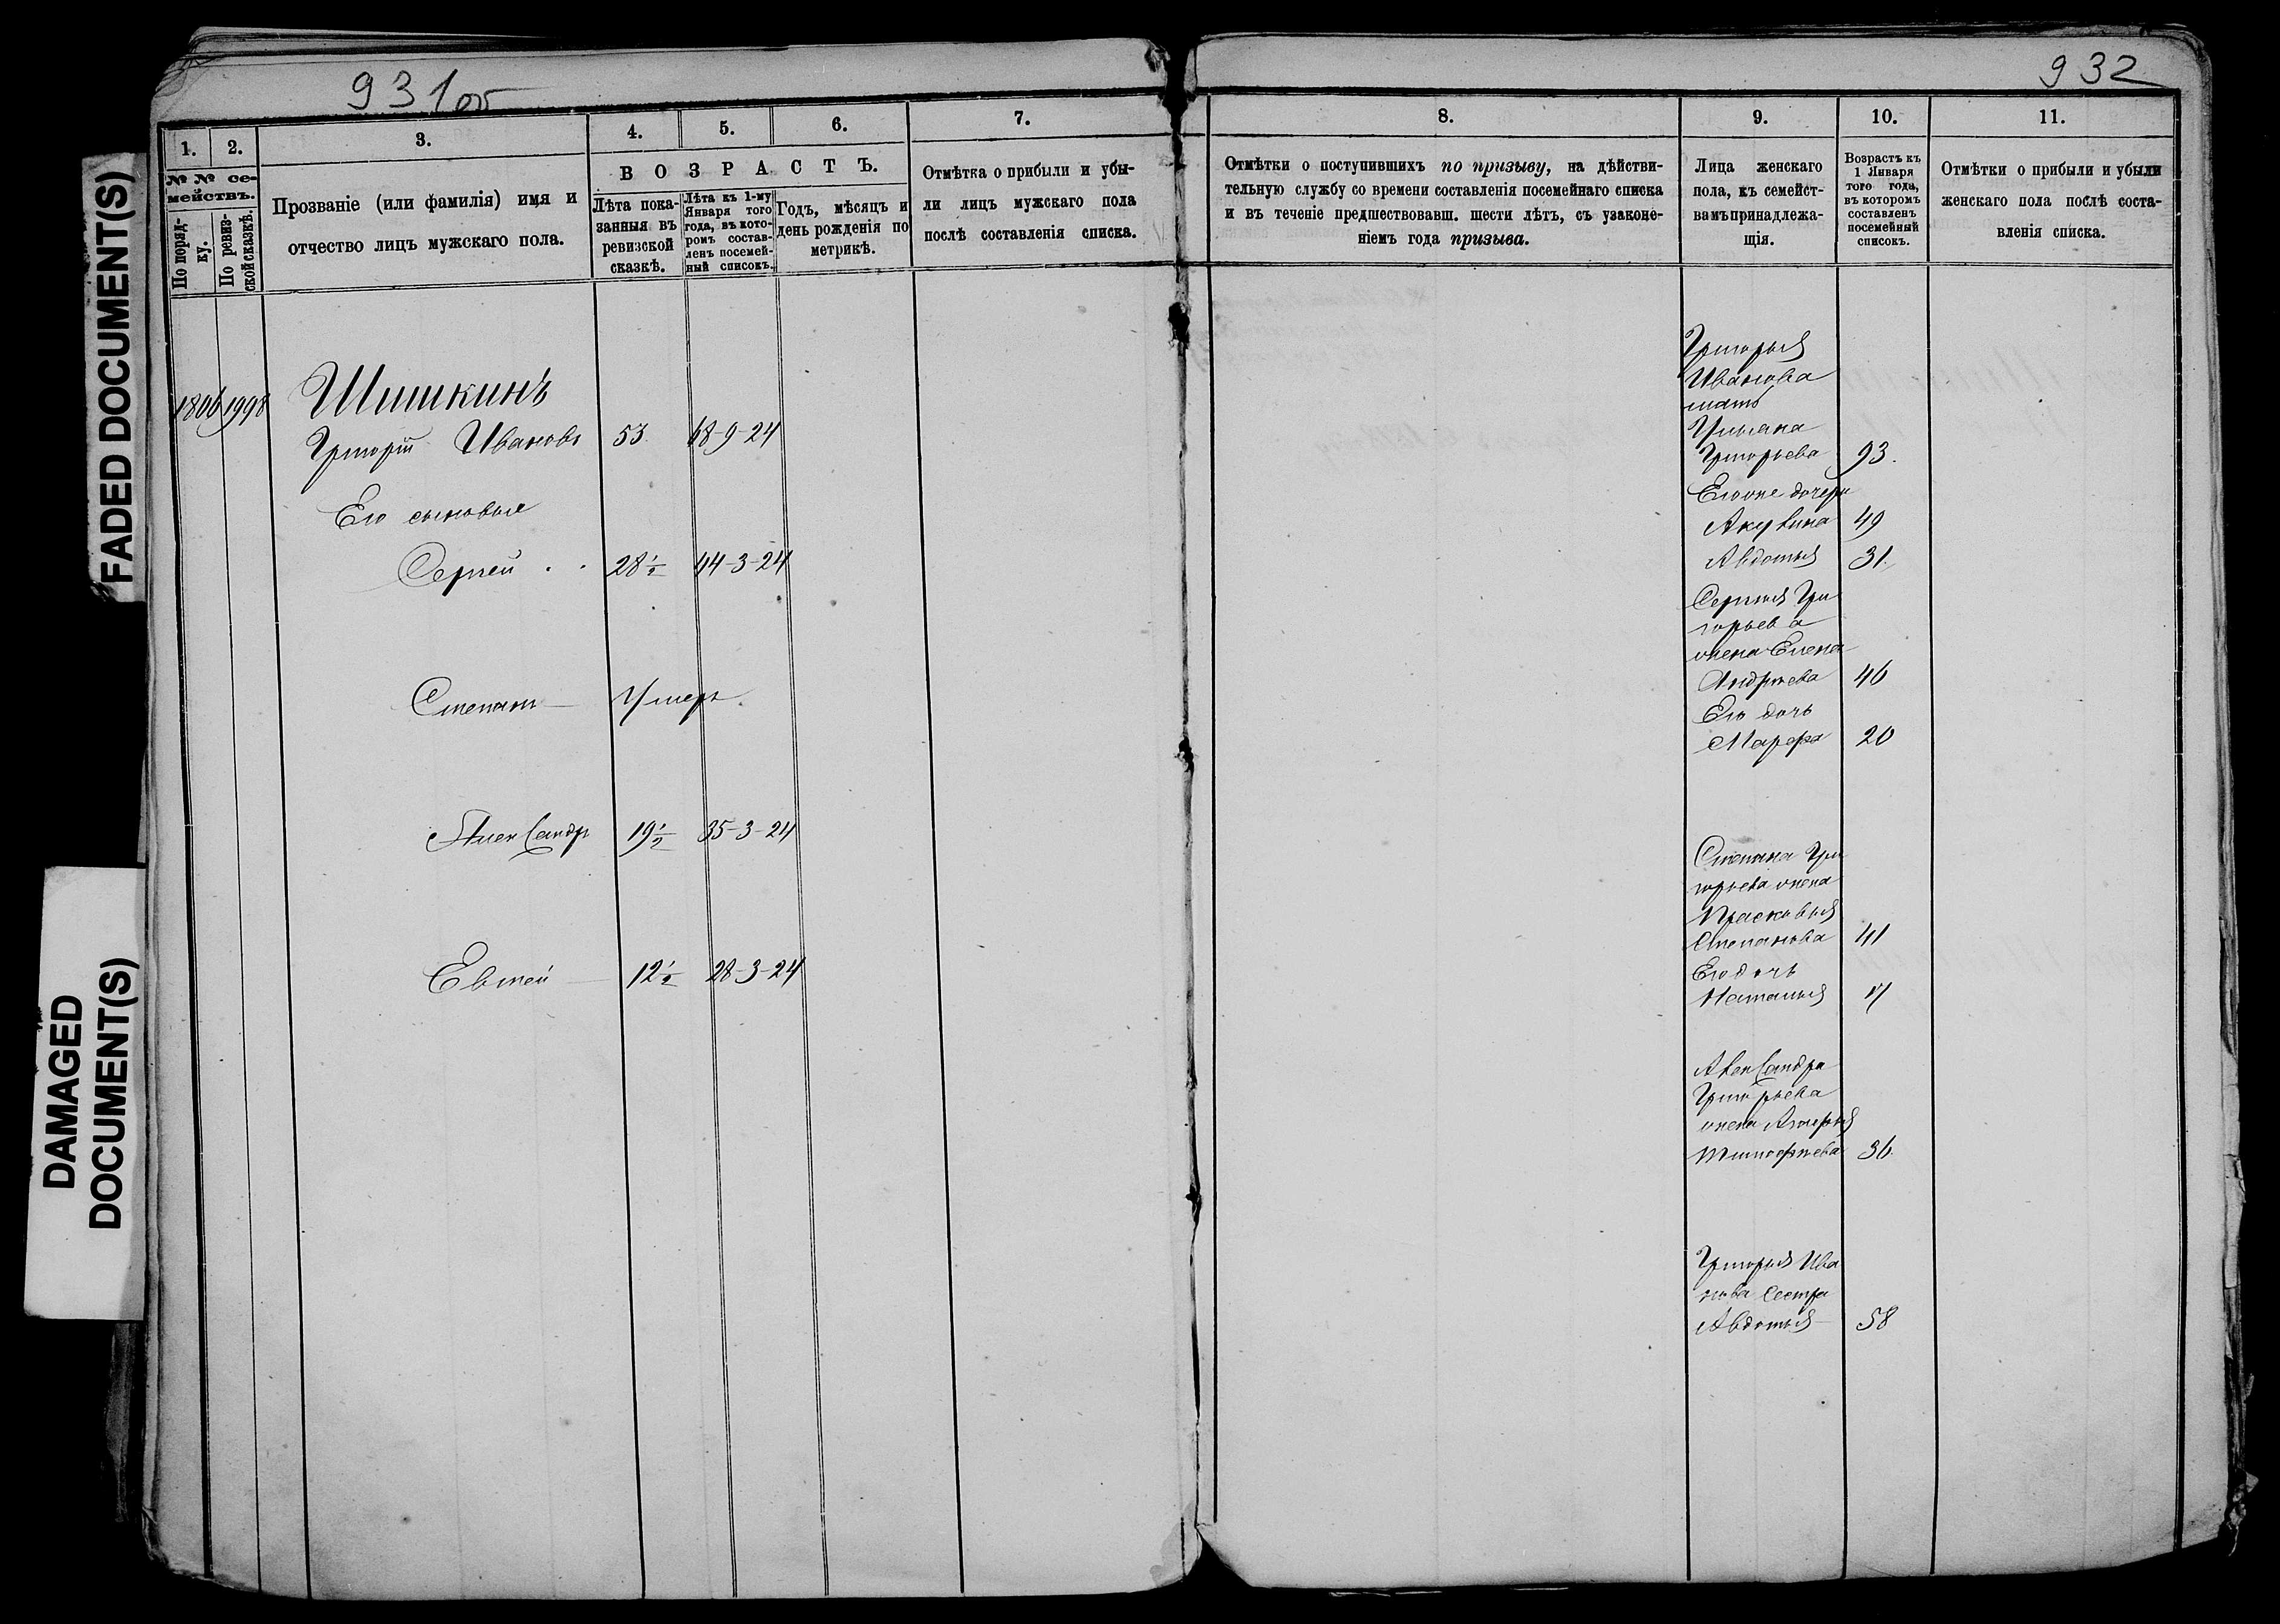 FADED DOCUMENT(S)
DAMAGED
DOCUMENT(S)
931об
1.
2.
3.
4.
5.
6.
7.
№ № се-
мействъ.
По поряд-
ку.
По ревиз-
ской сказкѣ.
Прозваніе (или фамилія) имя и
отчество лицъ мужскаго пола.
ВОЗРАСТЪ.
Лѣта пока-
занныя въ
ревизской
сказкѣ.
Лѣта къ 1-му
Января того
года, въ кото-
ромъ состав-
ленъ посемей-
ный списокъ.
Годъ, мѣсяцъ и
день рожденія по
метрикѣ.
Отмѣтка о прибыли и убы-
ли лицъ мужскаго пола
послѣ составленія списка.
1806 1998 Шишкинъ
Григорій Ивановъ 53 68-9-24
Его сыновья
Сергей 28½ 44-3-24
Степанъ Умеръ
Александръ 19½ 35-3-24
Евтей 12½ 28-3-24
932
8.
9.
10.
11.
Отмѣтки о поступившихъ по призыву, на дѣйстви-
тельную службу со времени составленія посемейнаго списка
и въ теченіе предшествовавш. шести лѣтъ, съ узаконе-
ніемъ года призыва.
Лица женскаго
пола, къ семейст-
вамъ принадлежа-
щія.
Возрастъ къ
1 Января
того года,
въ которомъ
составленъ
посемейный
списокъ.
Отмѣтки о прибыли и убыли
женскаго пола послѣ соста-
вленія списка.
Григорья
Иванова
мать
Ульяна
Григорьева 93.
Егоже дочери
Акулина 49
Авдотья 31.
Сергея Гри
горьева
жена Елена
Андреева 46
Его дочь
Марфа 20
Степана Гри
горьева жена
Прасковья
Степанова 41
Его дочь
Наталья 17
Александра
Григорьева
жена
Тимофеева 36.
Григорья Ива
нова Сестра
Авдотья 58